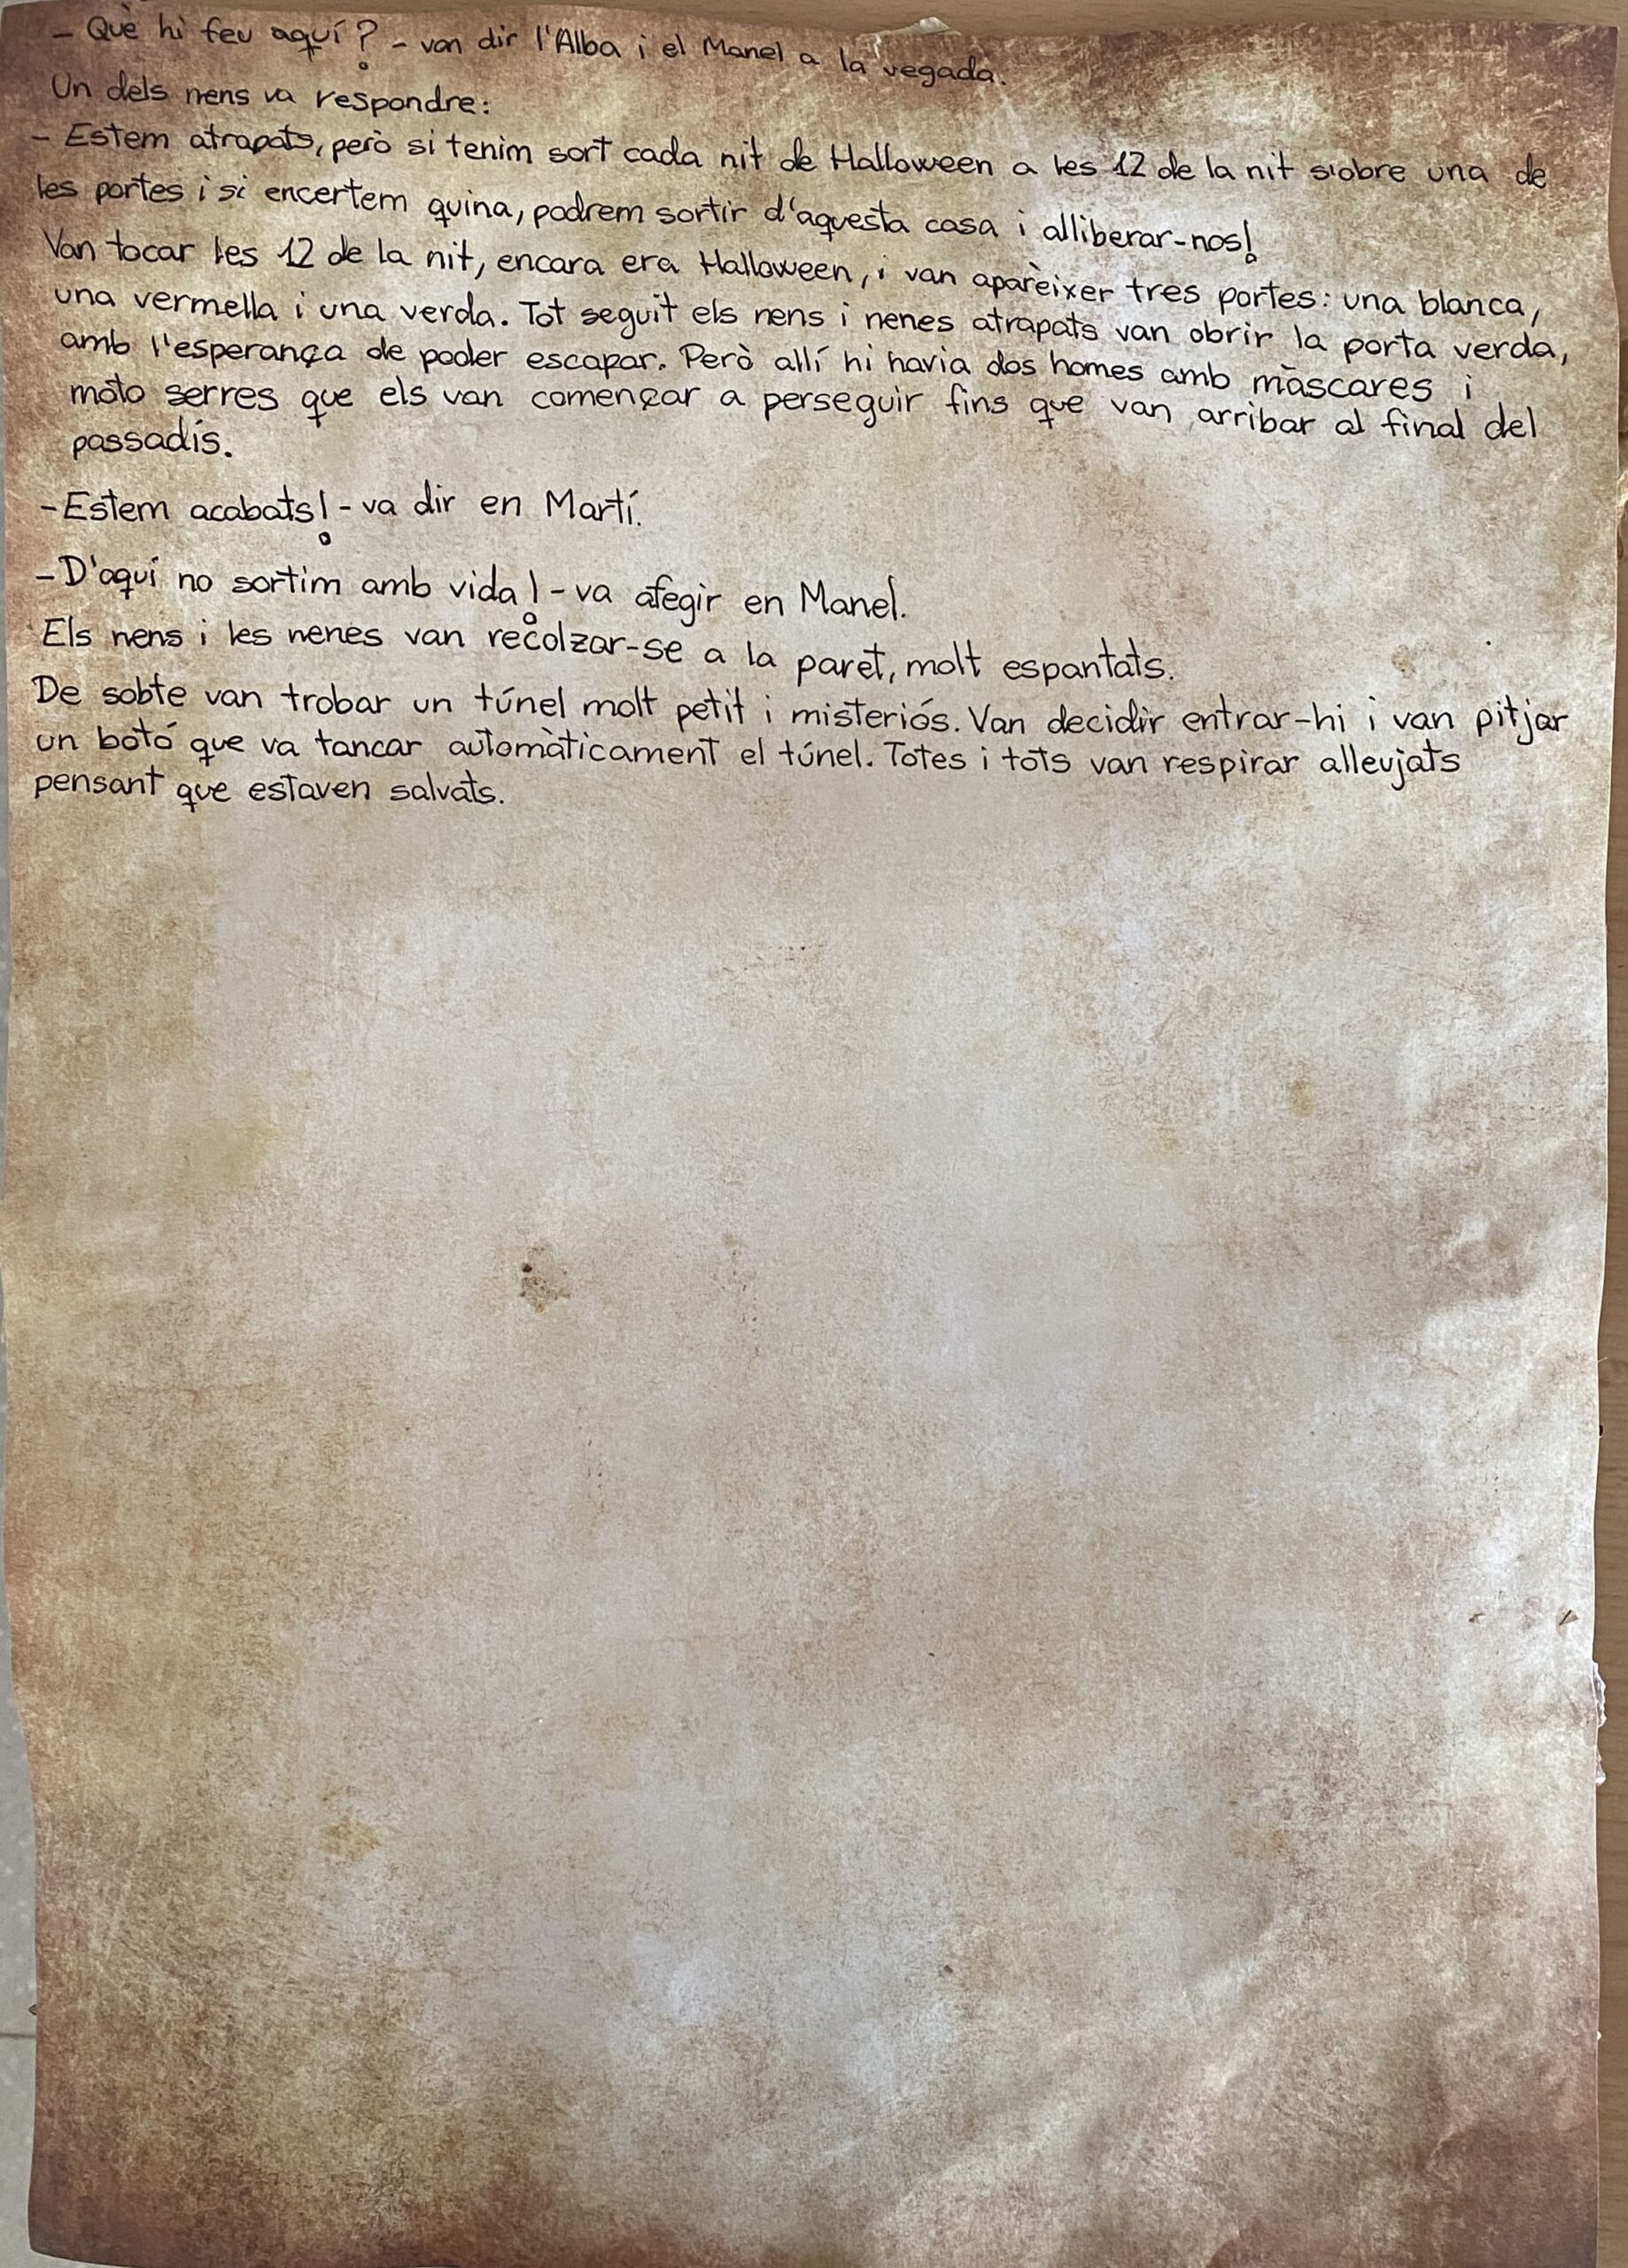 - Què hi feu aquí? - van dir l'Alba i el Manel a la vegada.
Un dels nens va respondre:
- Estem atrapats, però si tenim sort cada nit de Halloween a les 12 de la nit s'obre una de
les portes i si encertem quina, podrem sortir d'aquesta casa i alliberar-nos!
Van tocar les 12 de la nit, encara era Halloween, i van aparèixer tres portes: una blanca,
una vermella i una verda. Tot seguit els nens i nenes atrapats van obrir la porta verda,
amb l'esperança de poder escapar. Però allí hi havia dos homes amb màscares i
moto serres que els van començar a perseguir fins que van arribar al final del
passadís.
-Estem acabats! - va dir en Martí.
-D'aquí no sortim amb vida! - va afegir en Manel.
Els nens i les nenes van recolzar-se a la paret, molt espantats.
De sobte van trobar un túnel molt petit i misteriós. Van decidir entrar-hi i van pitjar
un botó que va tancar automàticament el túnel. Totes i tots van respirar alleujats
pensant que estaven salvats.